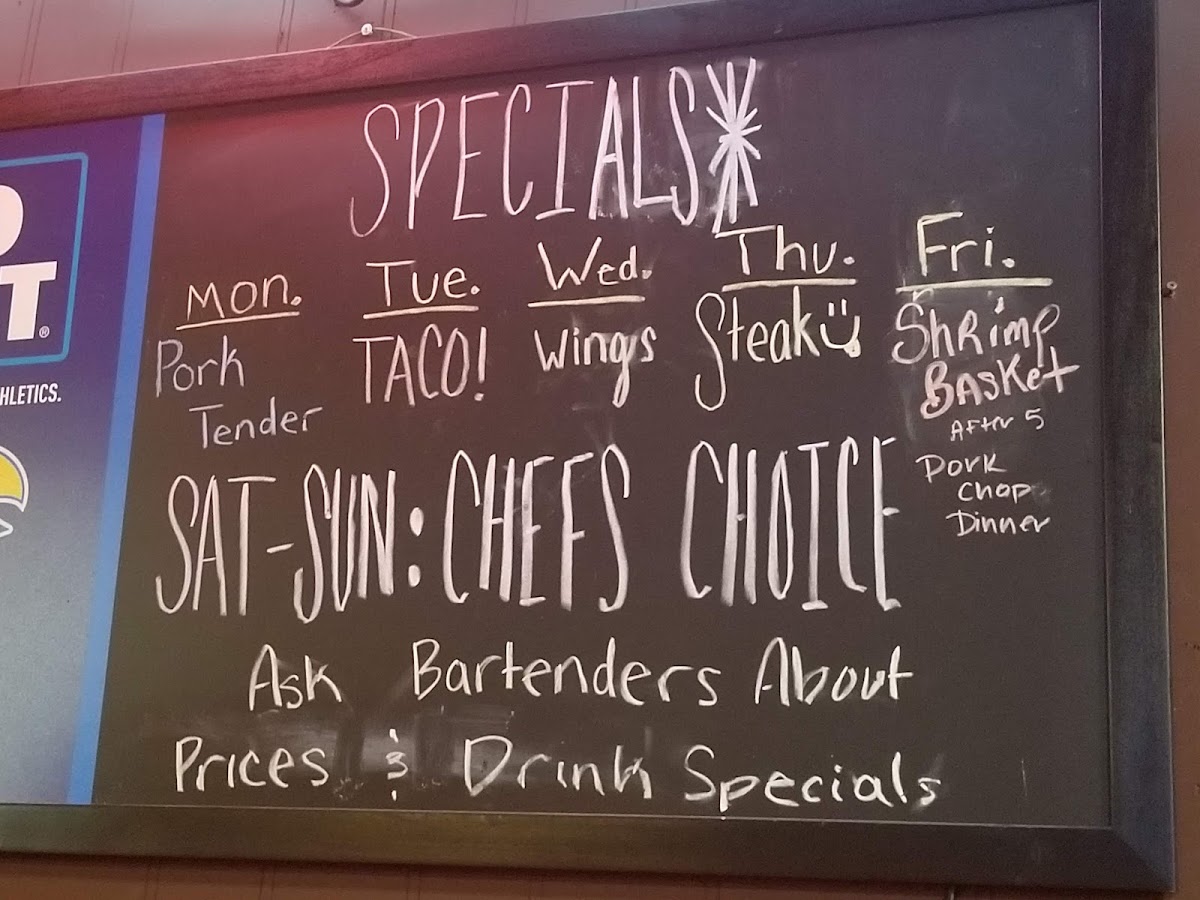 SPECIALS*
Mon.
Pork
Tender
Tue.
TACO!
Wed.
Wings
Thu.
Steak
Fri.
Shrimp
Basket
After 5
Pork
Chop
Dinner
SAT-SUN: CHEFS CHOICE
Ask Bartenders About
Prices & Drink Specials
T®
HLETICS.